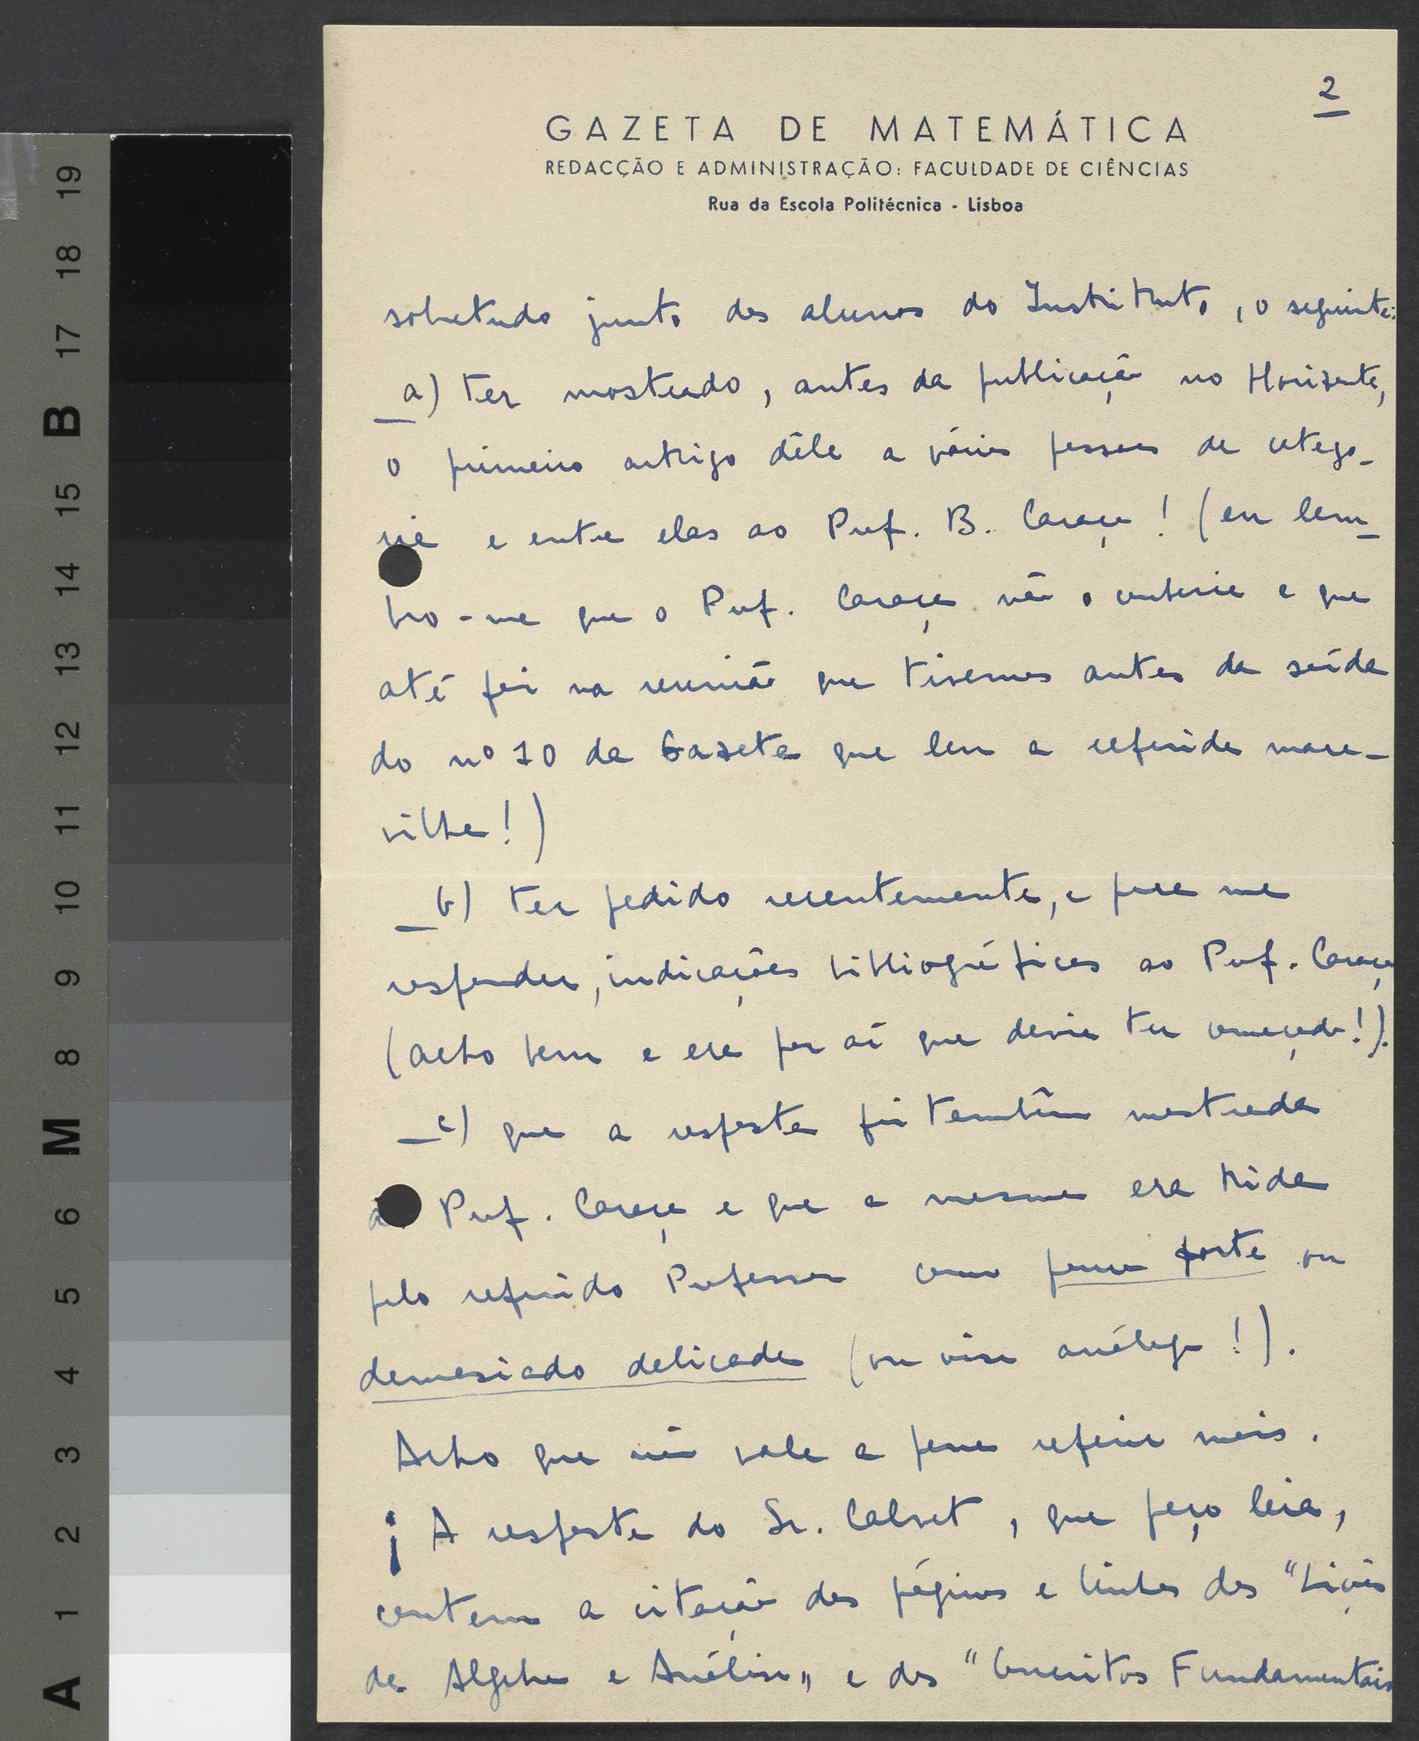 2
GAZETA DE MATEMÁTICA
REDACÇÃO E ADMINISTRAÇÃO: FACULDADE DE CIÊNCIAS
Rua da Escola Politécnica - Lisboa
sobretudo junto dos alunos do Instituto, o seguinte:
a) ter mostrado, antes da publicação no Horizonte,
o primeiro artigo dêle a várias pessoas de catego-
ria e entre elas ao Prof. B. Caraça! (eu lem-
bro-me que o Prof. Caraça não o conhecia e que
até foi na reunião que tivemos antes da saída
do nº 10 da Gazeta que leu a referida mara-
vilha!)
b) ter pedido recentemente, e para me
responder, indicações bibliográficas ao Prof. Caraça
(acho bem e era por aí que devia ter começado!).
c) que a resposta foi também mostrada
ao Prof. Caraça e que a mesma era tida
pelo referido Professor como pouco forte ou
demasiado delicada (ou coisa análoga!).
Acho que não vale a pena referir mais.
¡ A resposta do Sr. Calvet, que peço leia,
contem a citação das páginas e linhas das "Lições
de Algebra e Análise" e dos "Conceitos Fundamentais
19
18
17
B
15
14
13
12
11
10
9
8
M
6
5
4
3
2
1
A